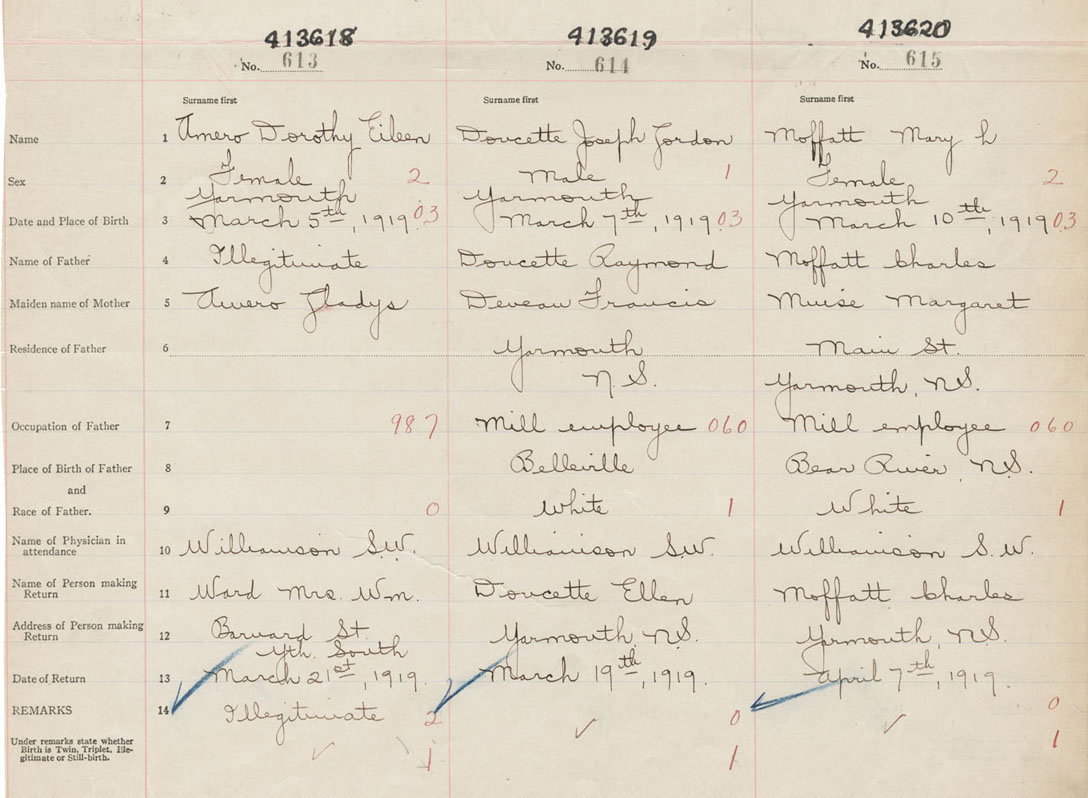 413618 413619 413620
No. 613 No. 614 No. 615
Surname first Surname first Surname first
Name 1 Amero Dorothy Eileen Doucette Joseph Gordon Moffatt Mary L
Sex 2 Female 2 Male 1 Female 2
Yarmouth Yarmouth Yarmouth
Date and Place of Birth 3 March 5th, 1919 03 March 7th, 1919 03 March 10th, 1919 03
Name of Father 4 Illegitimate Doucette Raymond Moffatt Charles
Maiden name of Mother 5 Amero Gladys Deveau Francis Muise Margaret
Residence of Father 6 Yarmouth Main St.
N.S. Yarmouth, N.S.
Occupation of Father 7 987 Mill employee 060 Mill employee 060
Place of Birth of Father 8 Belleville Bear River, N.S.
and
Race of Father. 9 0 White 1 White 1
Name of Physician in
attendance 10 Williamson S.W. Williamson S.W. Williamson S.W.
Name of Person making
Return 11 Ward Mrs. Wm. Doucette Ellen Moffatt Charles
Address of Person making
Return 12 Barnard St. Yarmouth, N.S. Yarmouth, N.S.
Yth. South
Date of Return 13 March 21st, 1919. March 19th, 1919. April 7th, 1919.
REMARKS 14 Illegitimate 2 0 0
Under remarks state whether
Birth is Twin, Triplet, Ille-
gitimate or Still-birth. 1 1 1